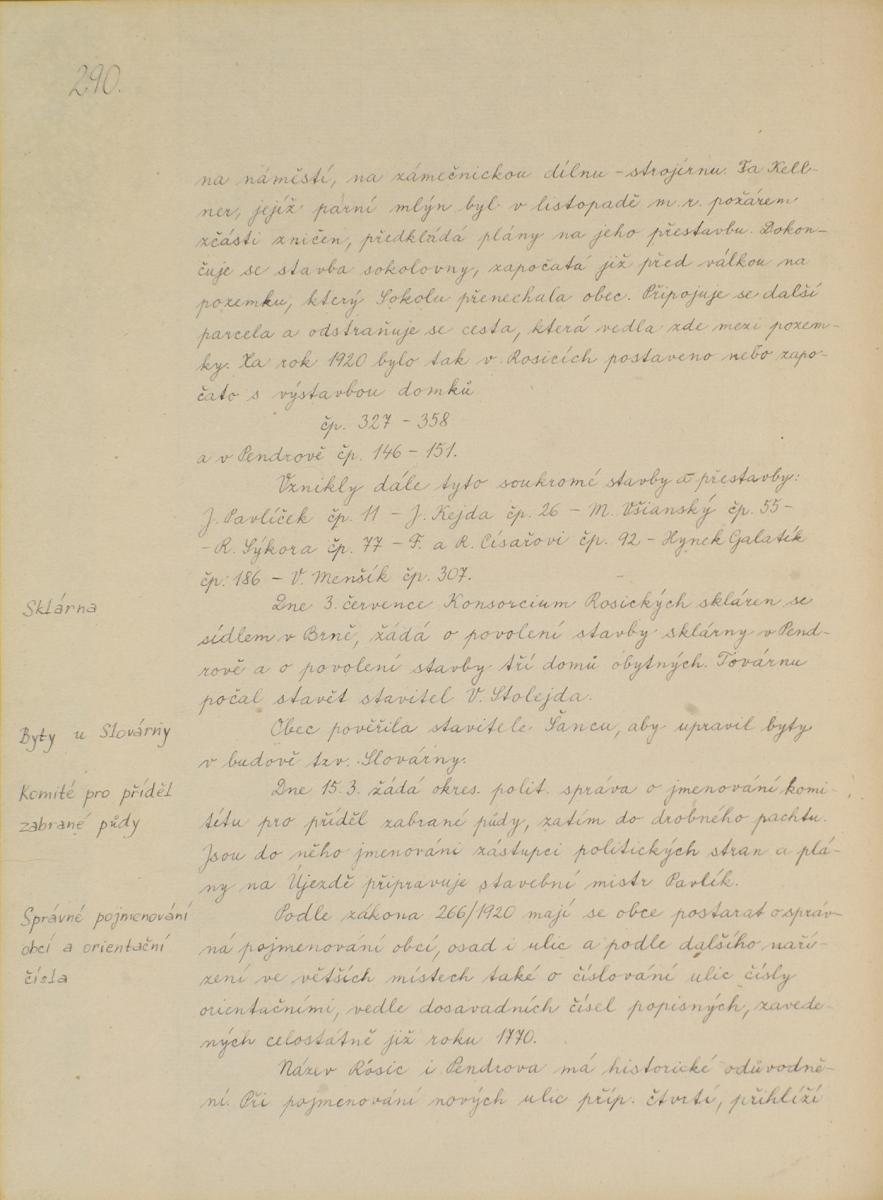 290.
na náměstí, na zámečnickou dílnu - strojírnu. Fa Kell-
ner, jejíž parní mlýn byl v listopadě m. r. požárem
zčásti zničen, předkládá plány na jeho přestavbu. Dokon-
čuje se stavba sokolovny, započatá již před válkou na
pozemku, který Sokolu přenechala obec. Připojuje se další
parcela a odstraňuje se cesta, která vedla zde mezi pozem-
ky. Za rok 1920 bylo tak v Rosicích postaveno nebo zapo-
čato s výstavbou domků
čp. 327 - 358
a v Pendrově čp. 146 - 151.
Vznikly dále tyto soukromé stavby a přestavby:
J. Pavlíček čp. 11 - J. Kejda čp. 26 - M. Všianský čp. 55 -
- R. Sýkora čp. 77 - F. a R. Císařovi čp. 92 - Hynek Galatík
čp. 186 - V. Menšík čp. 307.
Sklárna
Dne 3. července Konsorcium Rosických skláren se
sídlem v Brně, žádá o povolení stavby sklárny v Pend-
rově a o povolení stavby tří domů obytných. Továrnu
počal stavět stavitel V. Stolejda.
Byty u Slovárny
Obec pověřila stavitele Šancu, aby upravil byty
v budově tzv. Slovárny.
Komité pro příděl
zabrané půdy
Dne 15. 3. žádá okres. polit. správa o jmenování komi-
tétu pro příděl zabrané půdy, zatím do drobného pachtu.
Jsou do něho jmenováni zástupci politických stran a plá-
ny na Újezdě připravuje stavební mistr Pavlík.
Správné pojmenování
obcí a orientační
čísla
Podle zákona 266/1920 mají se obce postarat o správ-
ná pojmenování obcí, osad i ulic a podle dalšího naří-
zení ve větších místech také o číslování ulic čísly
orientačními, vedle dosavadních čísel popisných, zavede-
ných celostátně již roku 1770.
Název Rosic i Pendrova má historické odůvodně-
ní. Při pojmenování nových ulic příp. čtvrtí, přihlíží